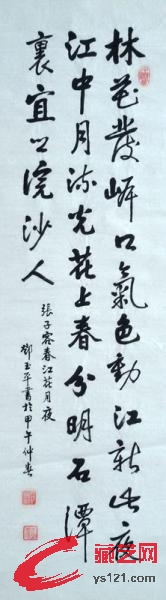 林花發岸口氣色動江新此夜
江中月流光花上春分明石潭
裏宜照浣沙人
張子容春江花月夜
鄧玉平書於甲午仲春
藏艺网
ys121.com